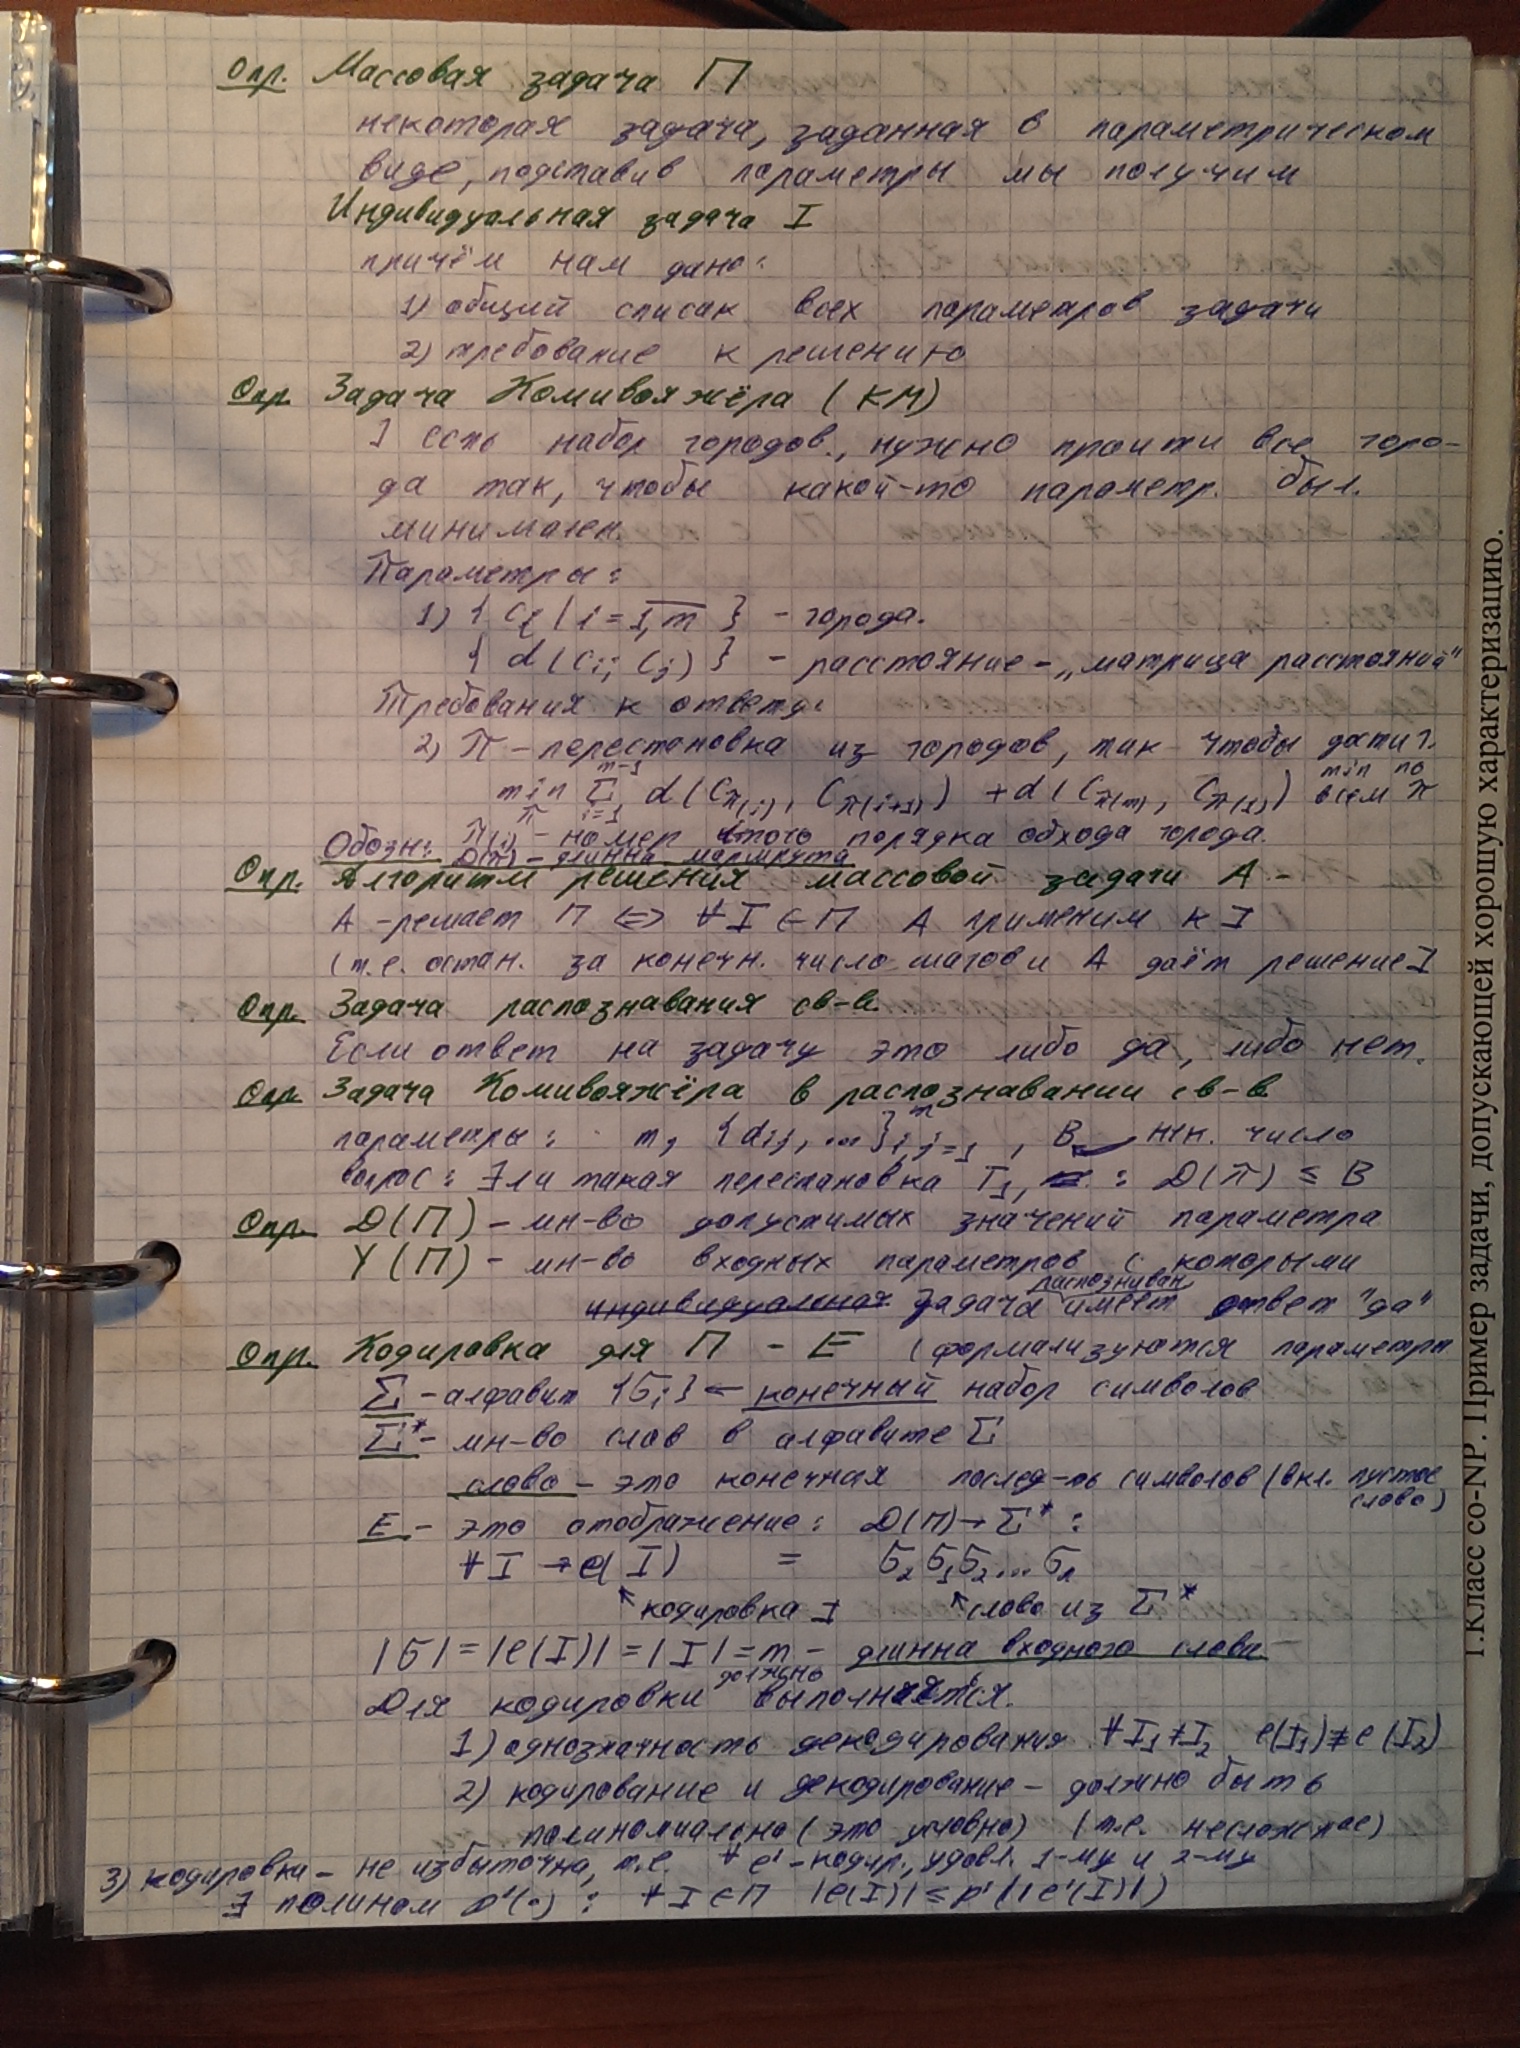 Опр. Массовая задача П
некоторая задача, заданная в параметрическом
виде, подставив параметры мы получим
Индивидуальная задача I
причём нам дано:
1) общий список всех параметров задачи
2) требование к решению
Опр. Задача Комивояжёра (КМ)
] есть набор городов, нужно пройти все горо-
да так, чтобы какой-то параметр. был.
минимален.
Параметры:
1) { Ci | i = 1,m } - города.
{ d(ci, cj) } - расстояние - „матрица расстояний“
Требования к ответу:
2) π - перестановка из городов, так чтобы достиг.
min π Σ i=1 m-1 d(Cπ(i), Cπ(i+1)) + d(Cπ(m), Cπ(1)) min по всем π
Обозн: π(i) - номер итого порядка обхода города.
D(π) - длинна маршрута
Опр. Алгоритм решения массовой задачи A -
A - решает П <=> ∀ I ∈ П A применим к I
(т.е. остан. за конечн. число шагов и A даёт решение I
Опр. Задача распознавания св-в.
Если ответ на задачу это либо да, либо нет.
Опр. Задача Комивояжёра в распознавании св-в
параметры: m, {dij, ...} i,j=1 m, B
число
вопрос: ∃ ли такая перестановка : D(π) ≤ B
Опр. D(П) - мн-во допустимых значений параметра
Y(П) - мн-во входных параметров с которыми
индивидуальная задача распознаван имеет ответ "да"
Опр. Кодировка для П - E (формализуются параметры
Σ - алфавит {σi} ← конечный набор символов
Σ* - мн-во слов в алфавите Σ
слово - это конечная послед-ть символов (вкл. пустое
слово)
E - это отображение: D(П) → Σ* :
∀ I → e(I) = σ2 σ1 σ2 ... σn
кодировка I слово из Σ*
|σ| = |e(I)| = |I| = m - длинна входного слова
Для кодировки должно выполняться.
1) однозначность декодирования ∀ I1 ≠ I2 e(I1) ≠ e(I2)
2) кодирование и декодирование - должно быть
полиномиально (это условно) (т.е. несложное)
3) кодировка - не избыточна, т.е. ∀ e' - кодир., удовл. 1-му и 2-му
∃ полином p'(·) : ∀ I ∈ П |e(I)| ≤ p'(|e'(I)|)
1.Класс со-NP . Пример задачи, допускающей хорошую характеризацию.